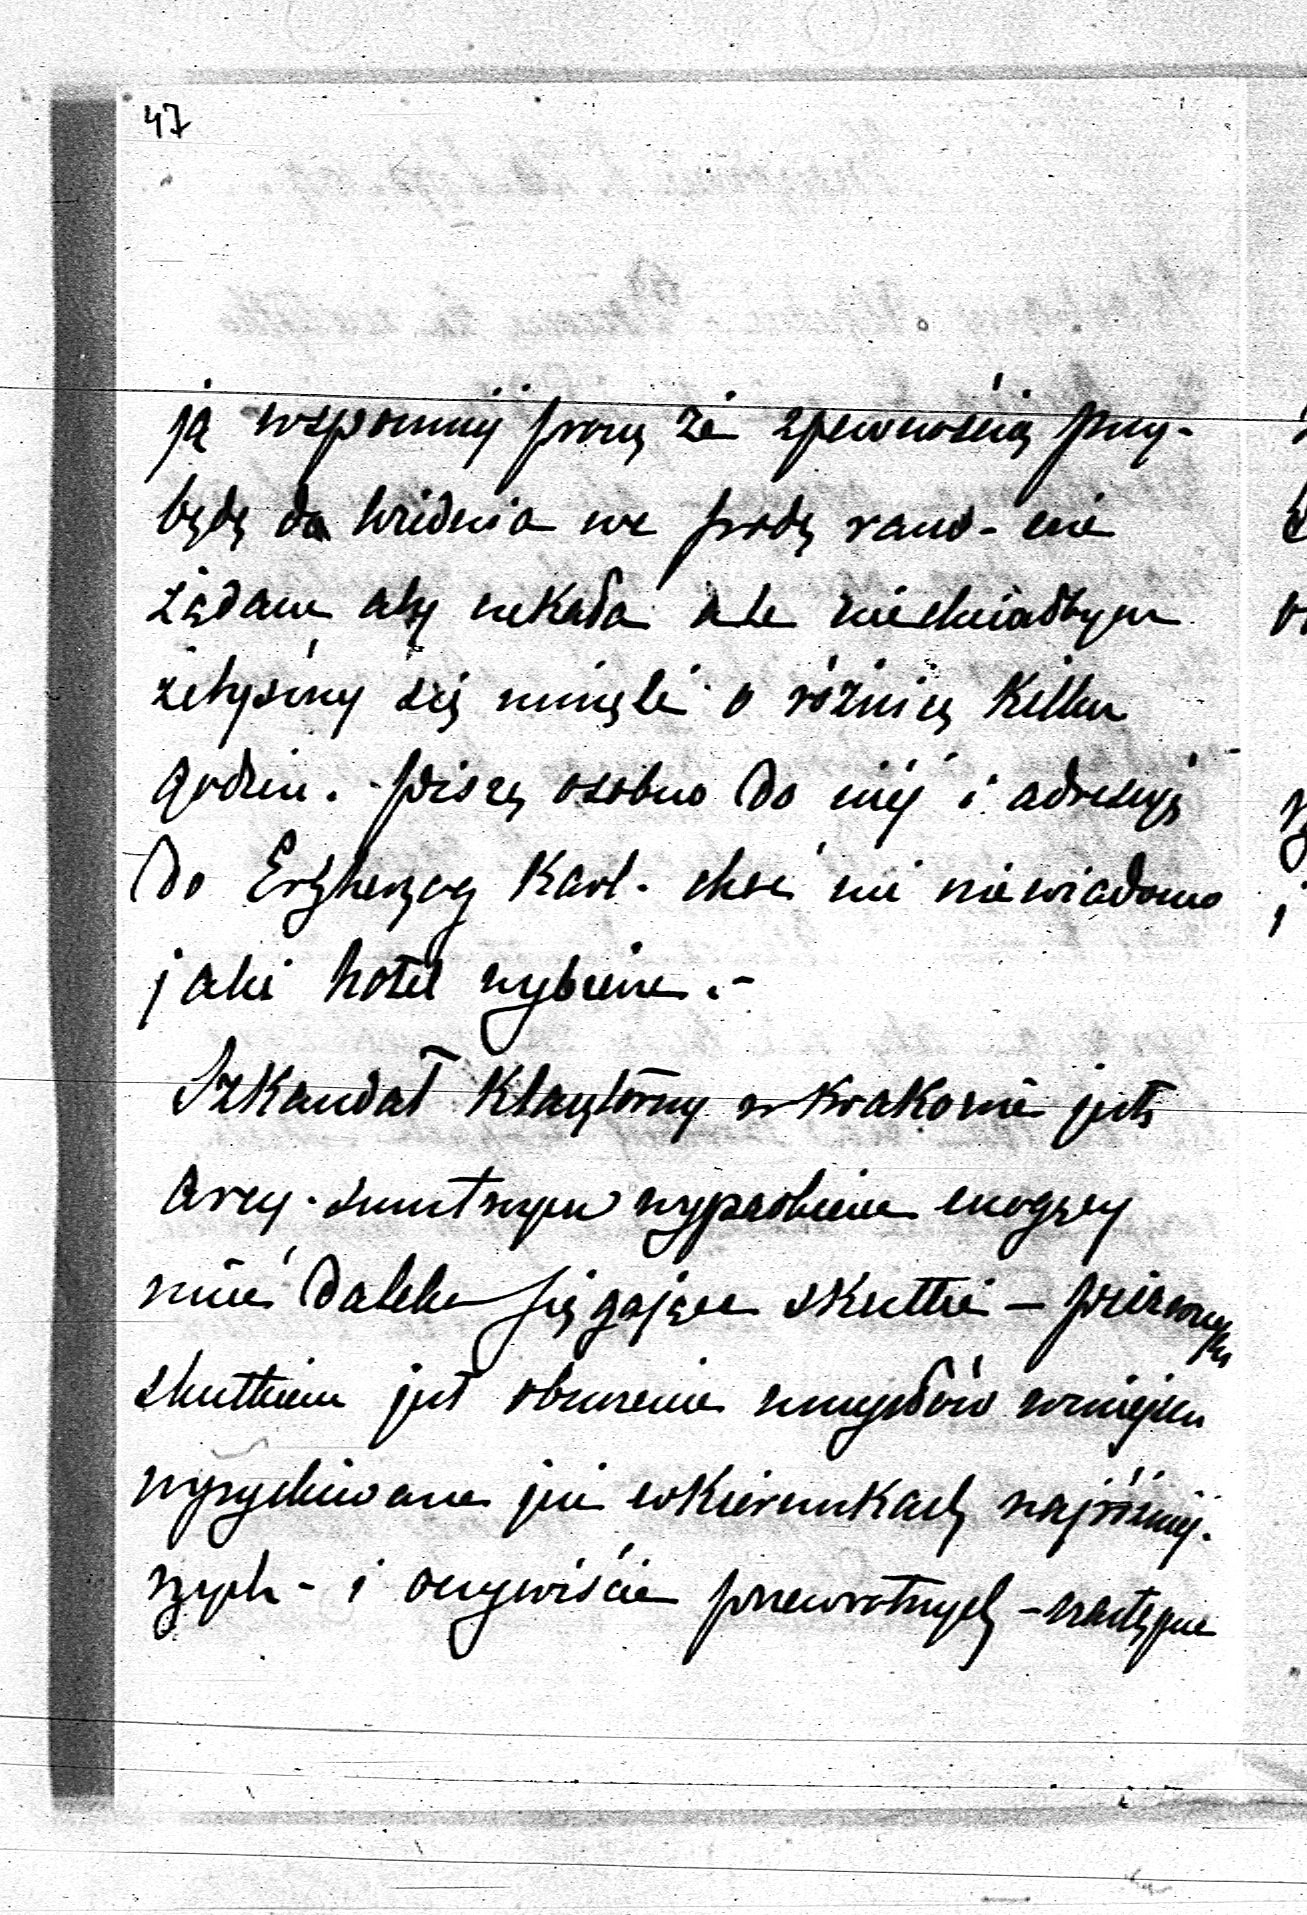 47
ją wspomnij proszę że zpewnością przy-
będę do Wiednia we środę rano - nie
żądam aby czekała ale niechciałbym
żebyśmy się minęli o różnicę kilku
godzin. - piszę osobno do niéj i adresuję
do Erzherzog Karl - choć mi niewiadomo
jaki hotel wybierze. -
Szkandał klasztorny w Krakowie jest
arcy-smutnym wypadkiem mogący
mieć daleko sięgające skutki - pierwszym
skutkiem jest oburzenie umysłów
wyzyskiwane już wkierunkach najróżniéj-
szych - i oczywiście przewrotnych - następne